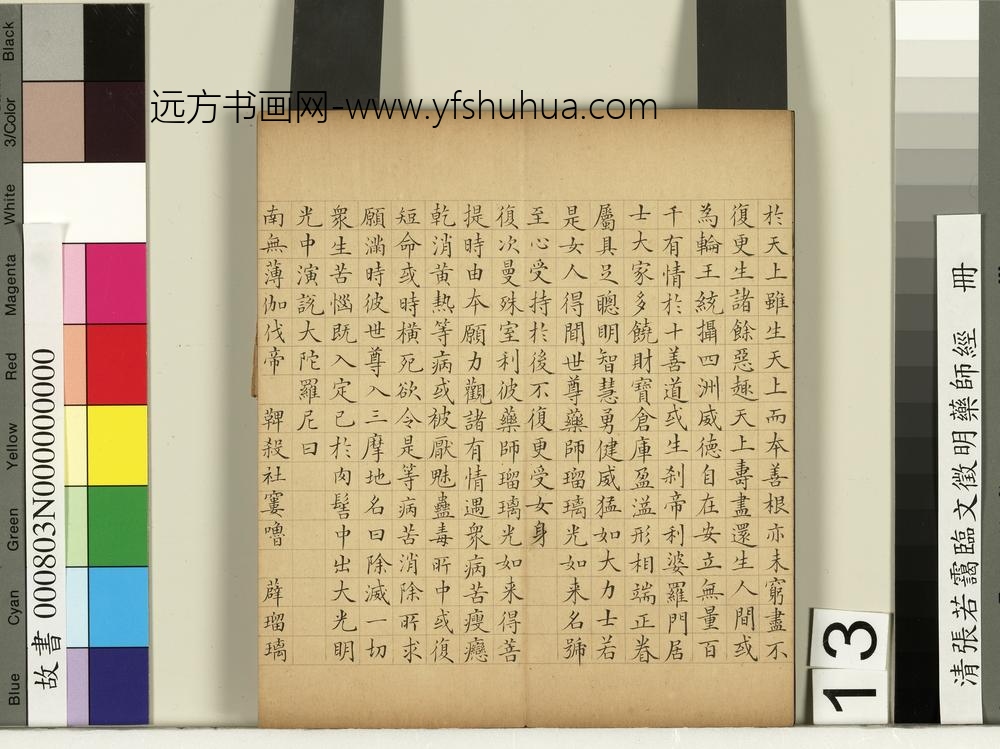 远方书画网-www.yfshuhua.com
於天上雖生天上而本善根亦未窮盡不
復更生諸餘惡趣天上壽盡還生人間或
為輪王統攝四洲威德自在安立無量百
千有情於十善道或生刹帝利婆羅門居
士大家多饒財寶倉庫盈溢形相端正眷
屬具足聰明智慧勇健威猛如大力士若
是女人得聞世尊藥師瑠璃光如来名號
至心受持於後不復更受女身
復次曼殊室利彼藥師瑠璃光如来得菩
提時由本願力觀諸有情遇衆病苦瘦癋
乾消黄熱等病或被厭魅蠱毒所中或復
短命或時橫死欲令是等病苦消除所求
願滿時彼世尊入三摩地名曰除滅一切
衆生苦惱既入定已於肉髻中出大光明
光中演說大陀羅尼曰
南無薄伽伐帝 鞞殺社窶嚕 薜瑠璃
Black
3/Color
White
Magenta
Red
Yellow
Green
Cyan
Blue
故書 000803N000000000
13
清張若靄臨文徵明藥師經 冊